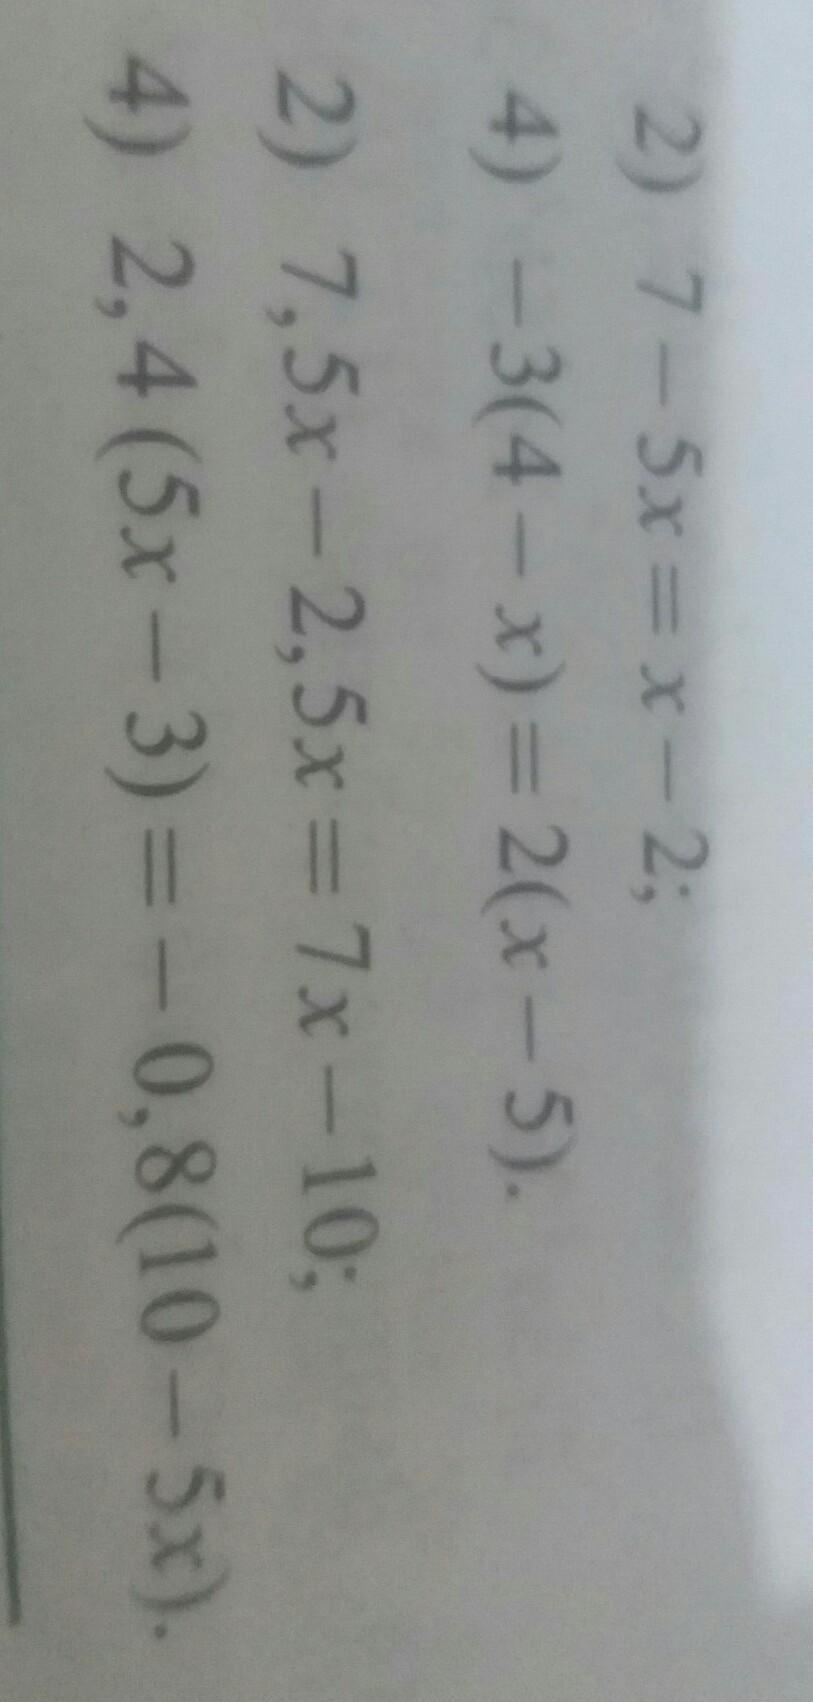 2) 7 – 5x = x – 2;
4) –3(4 – x) = 2(x – 5).
2) 7,5x – 2,5x = 7x – 10;
4) 2,4(5x – 3) = – 0,8(10 – 5x).